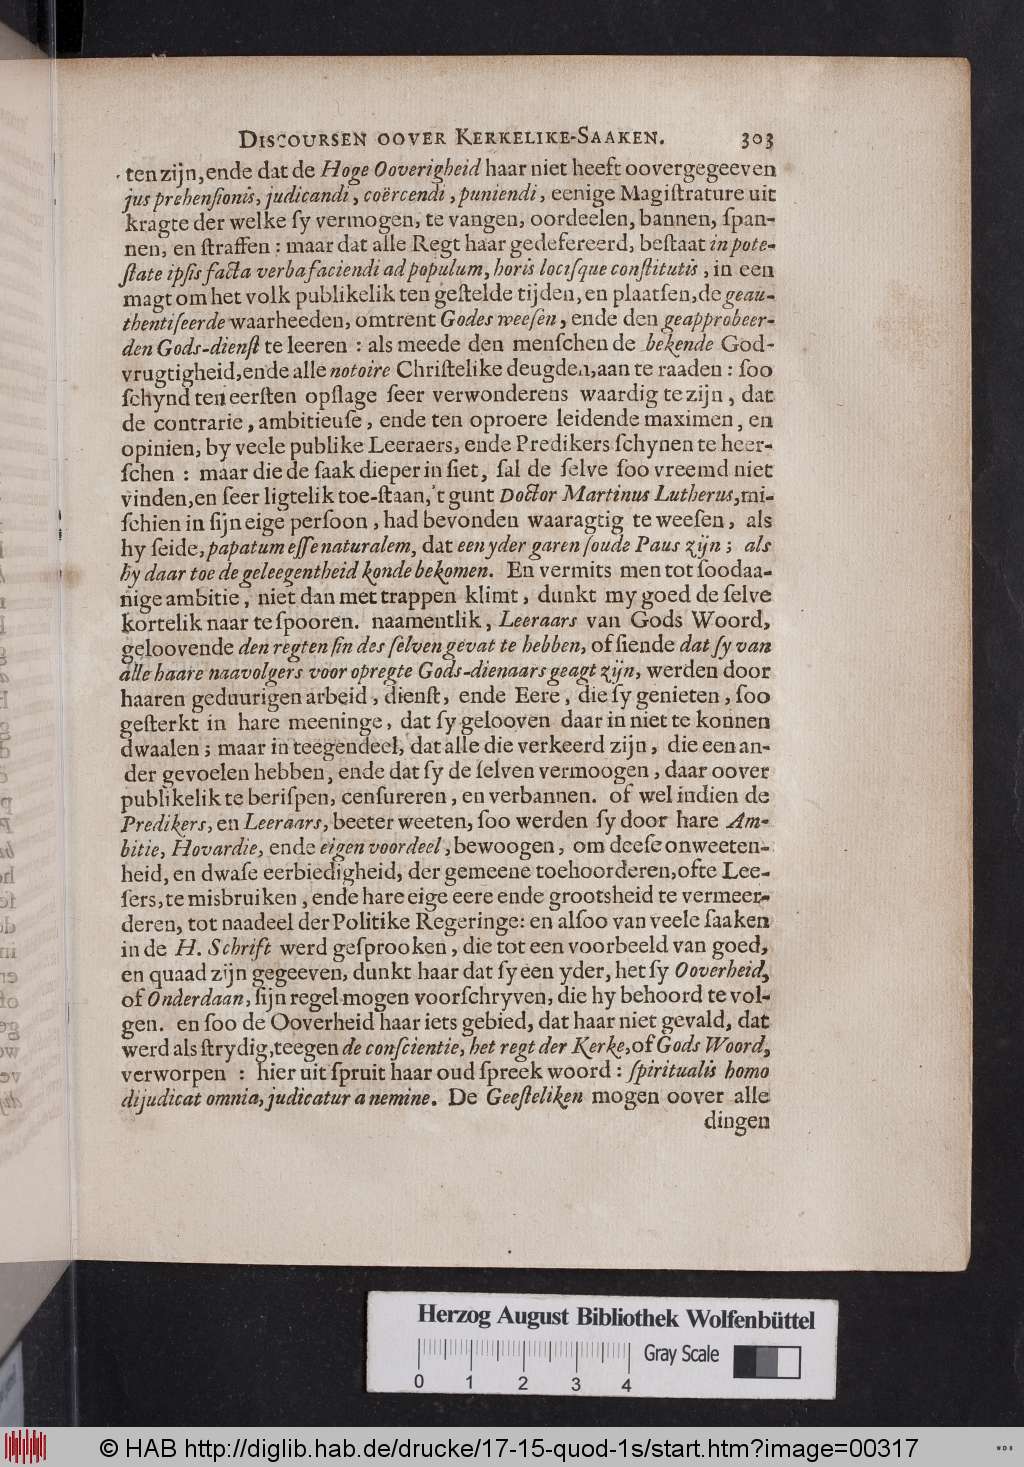 DISCOURSEN OOVER KERKELIKE-SAAKEN. 303
ten zijn, ende dat de Hoge Ooverigheid haar niet heeft oovergegeeven
jus prehensionis, judicandi, coërcendi, puniendi, eenige Magiſtrature uit
kragte der welke ſy vermogen, te vangen, oordeelen, bannen, ſpan-
nen, en ſtraffen: maar dat alle Regt haar gedefereerd, beſtaat in pote-
ſtate ipſis facta verba faciendi ad populum, horis lociſque conſtitutis, in een
magt om het volk publikelik ten geſtelde tijden, en plaatſen, de geau-
thentiſeerde waarheeden, omtrent Godes weeſen, ende den geapprobeer-
den Gods-dienſt te leeren : als meede den menſchen de bekende God-
vrugtigheid, ende alle notoire Chriſtelike deugden, aan te raaden: ſoo
ſchynd ten eerſten opſlage ſeer verwonderens waardig te zijn, dat
de contrarie, ambitieuſe, ende ten oproere leidende maximen, en
opinien, by veele publike Leeraers, ende Predikers ſchynen te heer-
ſchen : maar die de ſaak dieper in ſiet, ſal de ſelve ſoo vreemd niet
vinden, en ſeer ligtelik toe-ſtaan, 't gunt Doctor Martinus Lutherus, mi-
ſchien in ſijn eige perſoon, had bevonden waaragtig te weeſen, als
hy ſeide, papatum eſſe naturalem, dat een yder garen ſoude Paus zijn; als
hy daar toe de geleegentheid konde bekomen. En vermits men tot ſoodaa-
nige ambitie, niet dan met trappen klimt, dunkt my goed de ſelve
kortelik naar te ſpooren. naamentlik, Leeraars van Gods Woord,
geloovende den regten ſin des ſelven gevat te hebben, of ſiende dat ſy van
alle haare naavolgers voor opregte Gods-dienaars geagt zijn, werden door
haaren geduurigen arbeid, dienſt, ende Eere, die ſy genieten, ſoo
geſterkt in hare meeninge, dat ſy gelooven daar in niet te konnen
dwaalen; maar in teegendeel, dat alle die verkeerd zijn, die een an-
der gevoelen hebben, ende dat ſy de ſelven vermoogen, daar oover
publikelik te beriſpen, cenſureren, en verbannen. of wel indien de
Predikers, en Leeraars, beeter weeten, ſoo werden ſy door hare Am-
bitie, Hovardie, ende eigen voordeel, bewoogen, om deeſe onweeten-
heid, en dwaſe eerbiedigheid, der gemeene toehoorderen, ofte Lee-
ſers, te misbruiken, ende hare eige eere ende grootsheid te vermeer-
deren, tot naadeel der Politike Regeringe: en alſoo van veele ſaaken
in de H. Schrift werd geſprooken, die tot een voorbeeld van goed,
en quaad zijn gegeeven, dunkt haar dat ſy een yder, het ſy Ooverheid,
of Onderdaan, ſijn regel mogen voorſchryven, die hy behoord te vol-
gen. en ſoo de Ooverheid haar iets gebied, dat haar niet gevald, dat
werd als ſtrydig, teegen de conſcientie, het regt der Kerke, of Gods Woord,
verworpen : hier uit ſpruit haar oud ſpreek woord: ſpiritualis homo
dijudicat omnia, judicatur a nemine. De Geeſteliken mogen oover alle
dingen
Herzog August Bibliothek Wolfenbüttel
Gray Scale
0 1 2 3 4
© HAB http://diglib.hab.de/drucke/17-15-quod-1s/start.htm?image=00317